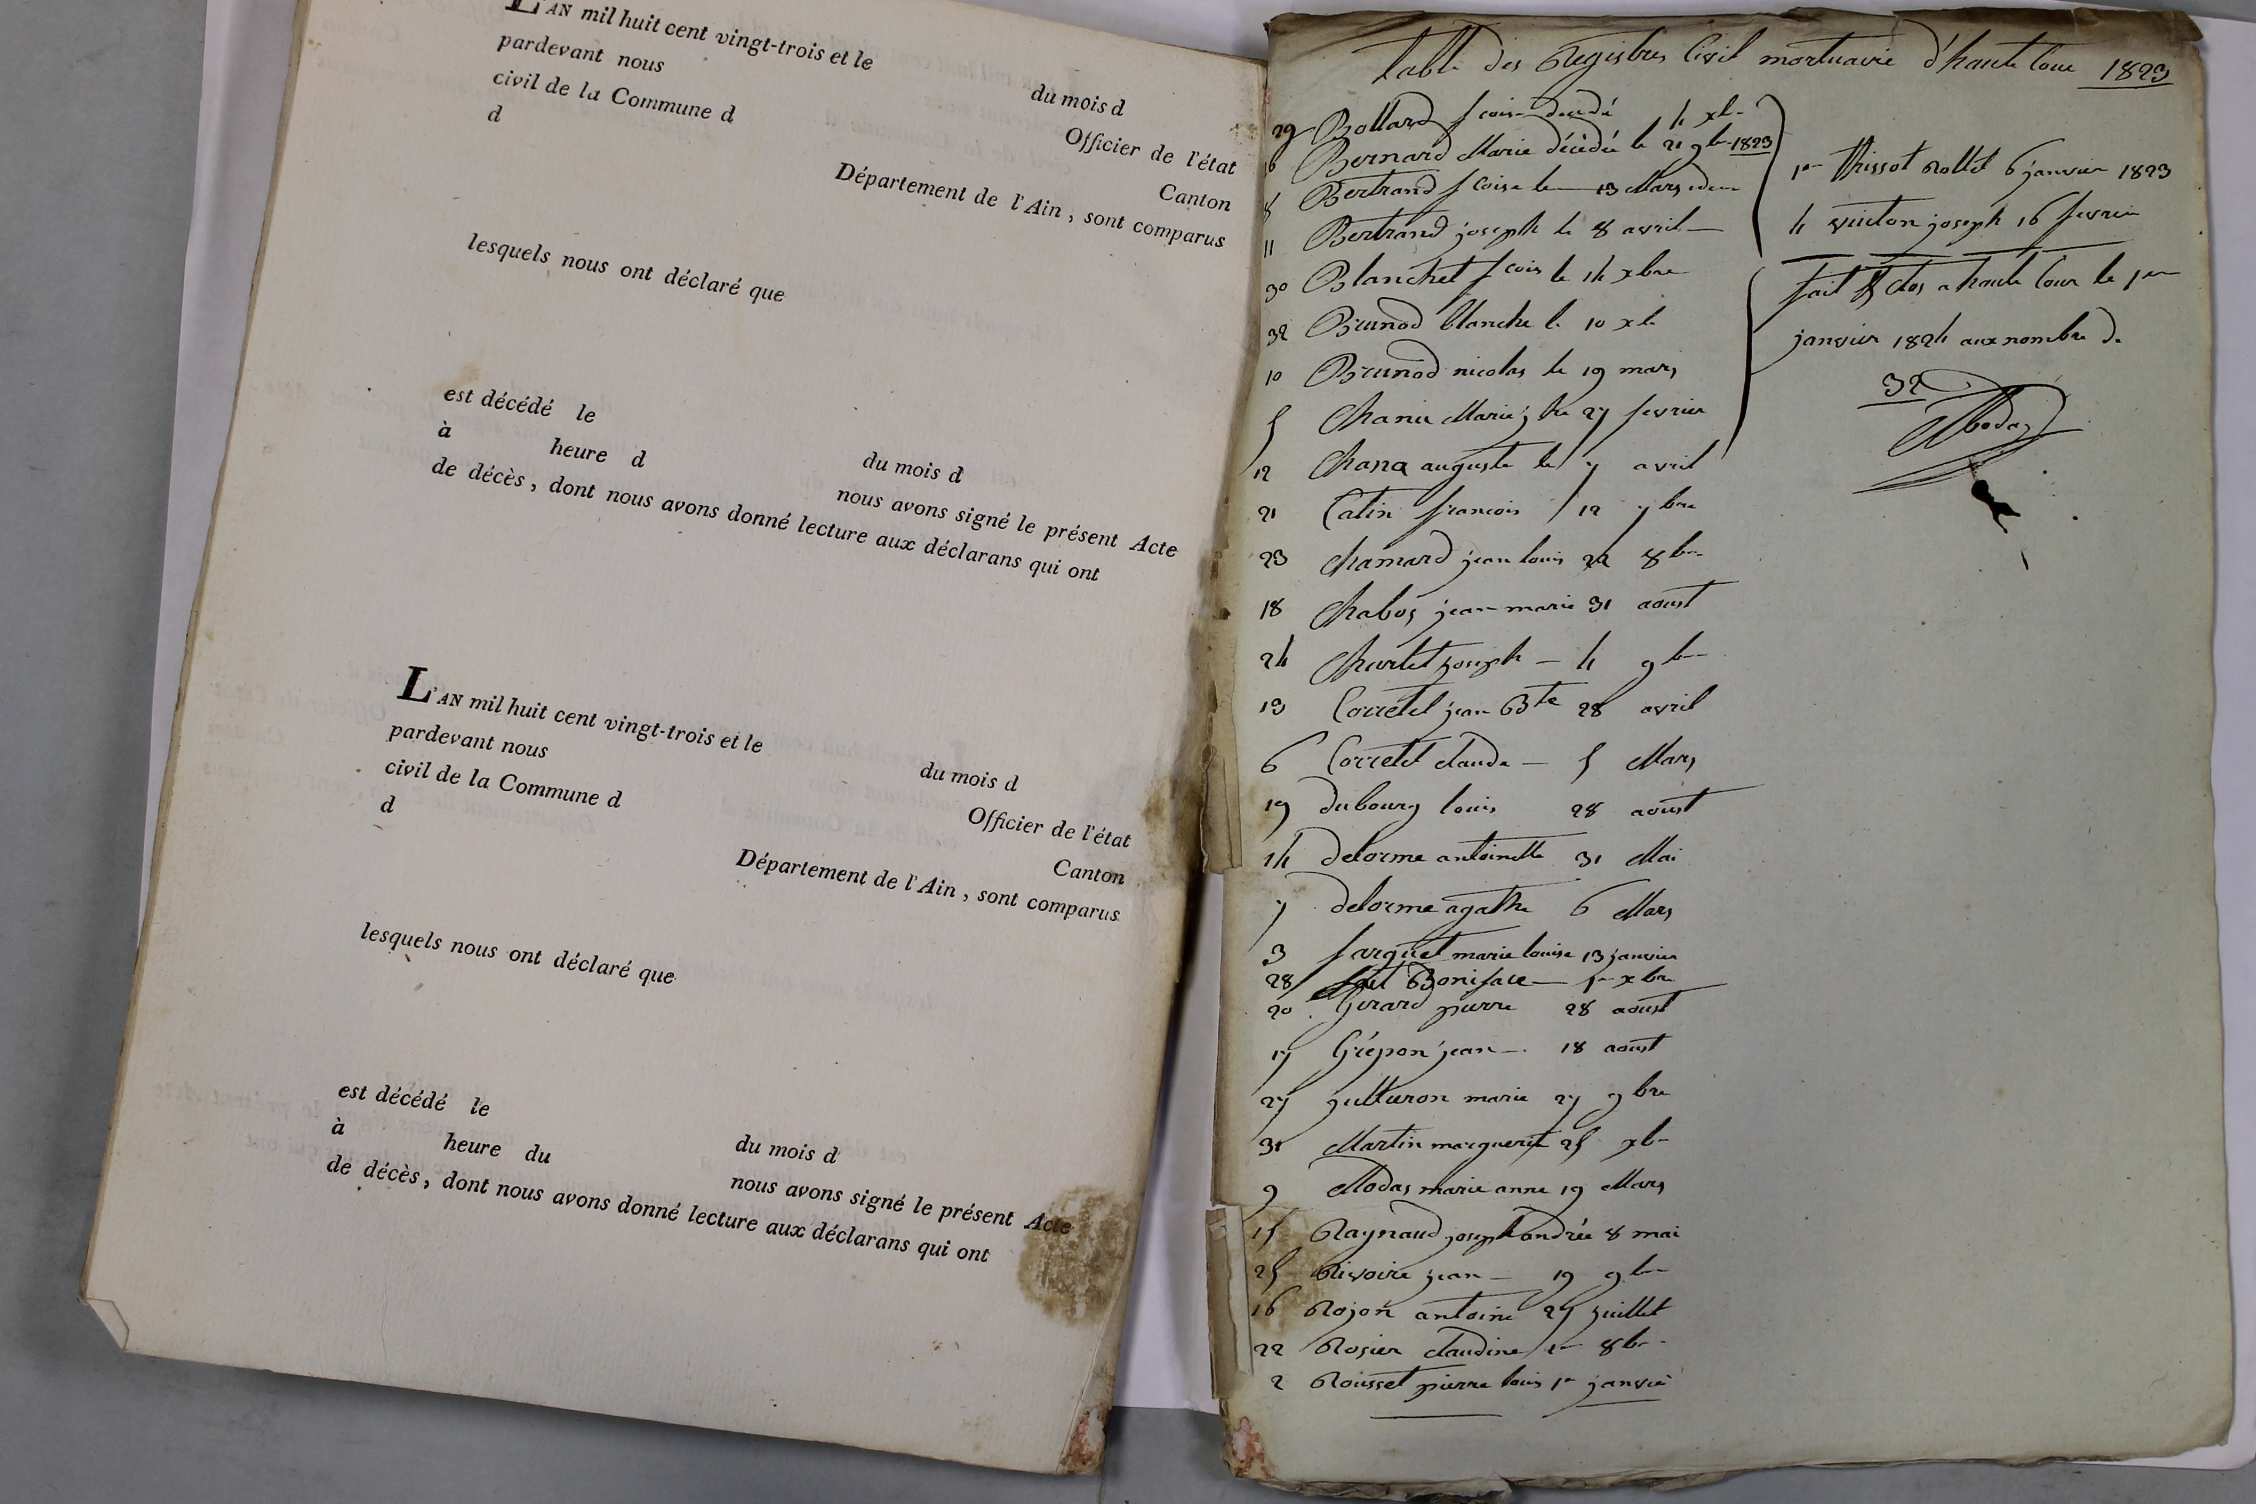 L'AN mil huit cent vingt-trois et le du mois d
pardevant nous Officier de l'état
civil de la Commune d Canton
d Département de l'Ain, sont comparus
lesquels nous ont déclaré que
est décédé le du mois d
à heure d nous avons signé le présent Acte
de décès, dont nous avons donné lecture aux déclarans qui ont
L'AN mil huit cent vingt-trois et le du mois d
pardevant nous Officier de l'état
civil de la Commune d Canton
d Département de l'Ain, sont comparus
lesquels nous ont déclaré que
est décédé le du mois d
à heure du nous avons signé le présent Acte
de décès, dont nous avons donné lecture aux déclarans qui ont
Table des Registres Civil mortuaire d'haute Cour 1823
29 Bollard fcoise décédé 4 xb
Bernard Marie décédée le 21 9b 1823
8 Bertrand fcoise le 13 Mars idem
11 Bertrand joseph le 8 avril
30 Blanchet fcois le 14 xbre
32 Brunod blanche le 10 xb
10 Brunod nicolas le 19 mars
5 Marie 27 fevrier
12 auguste le 7 avril
21 Catin francois 12 7bre
23 Chamard jean louis 22 8b
18 Chabos jean marie 31 aoust
24 Charlet joseph 4 9b
13 Corretel jean Bte 28 avril
6 Corretel claude 5 Mars
19 dubourg louis 28 aoust
14 delorme antoinette 31 Mai
7 delorme agathe 6 Mars
3 farguet marie louise 13 janvier
28 Boniface 1er xbre
20 Girard pierre 28 aoust
17 Grépon jean 18 aoust
27 marie 27 9bre
31 Martin marguerit 25 xb
9 Modas marie anne 19 Mars
15 Raynaud joseph andrée 8 mai
25 Rivoire jean 19 9b
16 Rojon antoine 25 juillet
22 Rosier claudine 1er 8b
2 Rousset pierre louis 1er janvié
1er 6 janvier 1823
4 joseph 16 fevrier
fait & clos a haute Cour le 1er
janvier 1824 aux nombre de
32